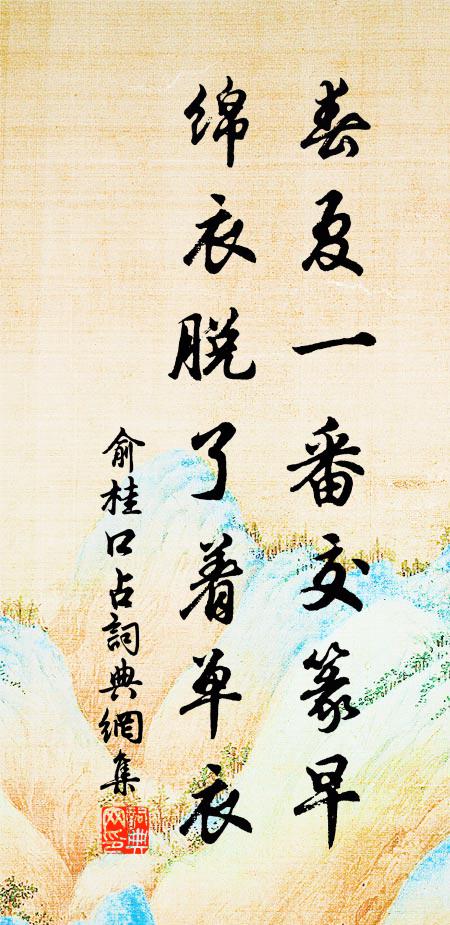 春夏一番交篆早
绵衣脱了着单衣
俞桂口占詞典網集
詞典网印